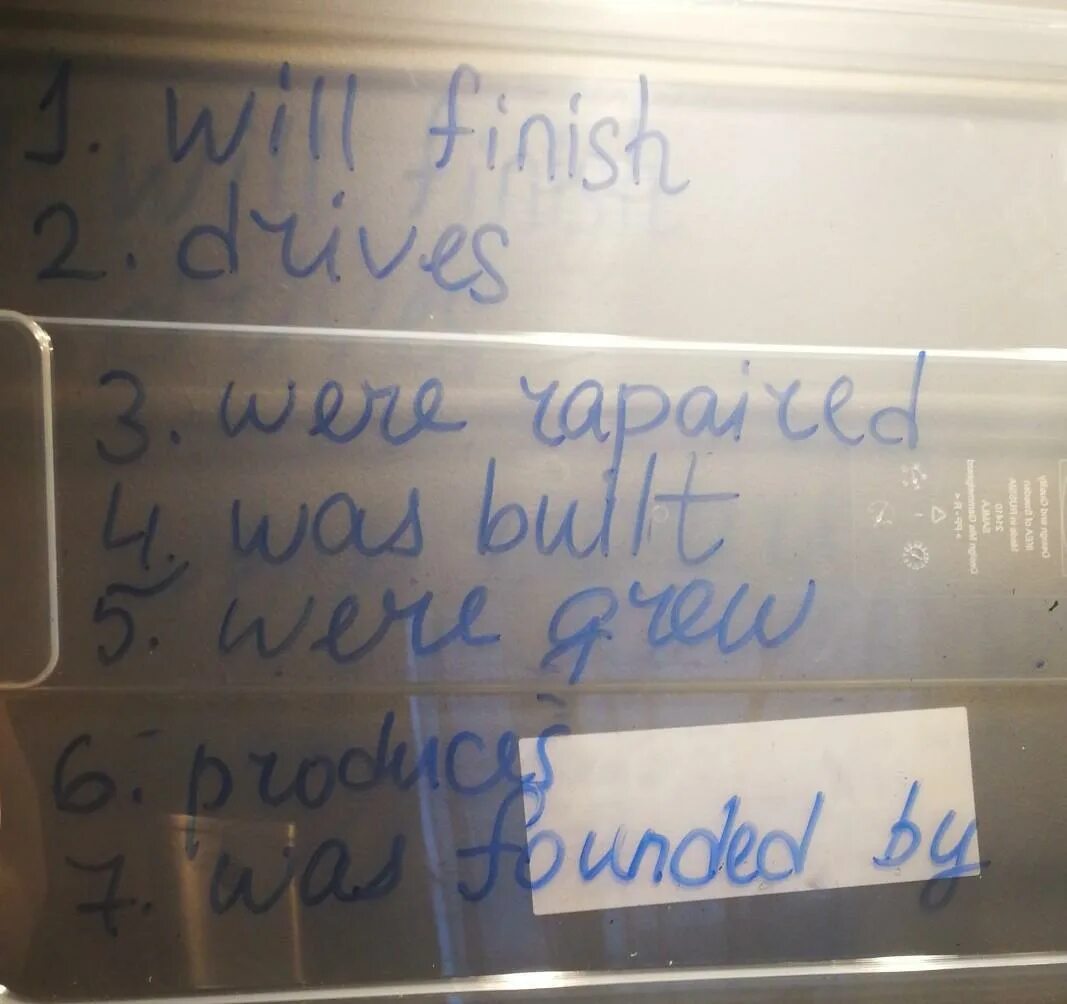 1. will finish
2. drives
3. were rapaired
4. was built
5. were grew
6. produces
7. was founded by